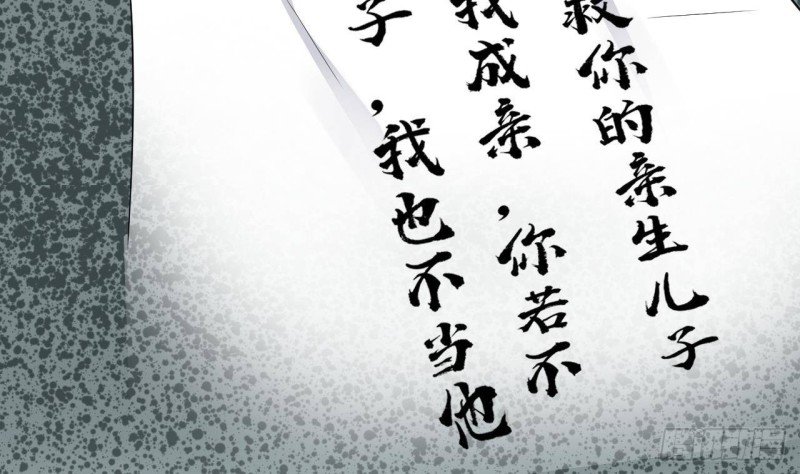 救你的亲生儿子
我成亲，你若不
子，我也不当他